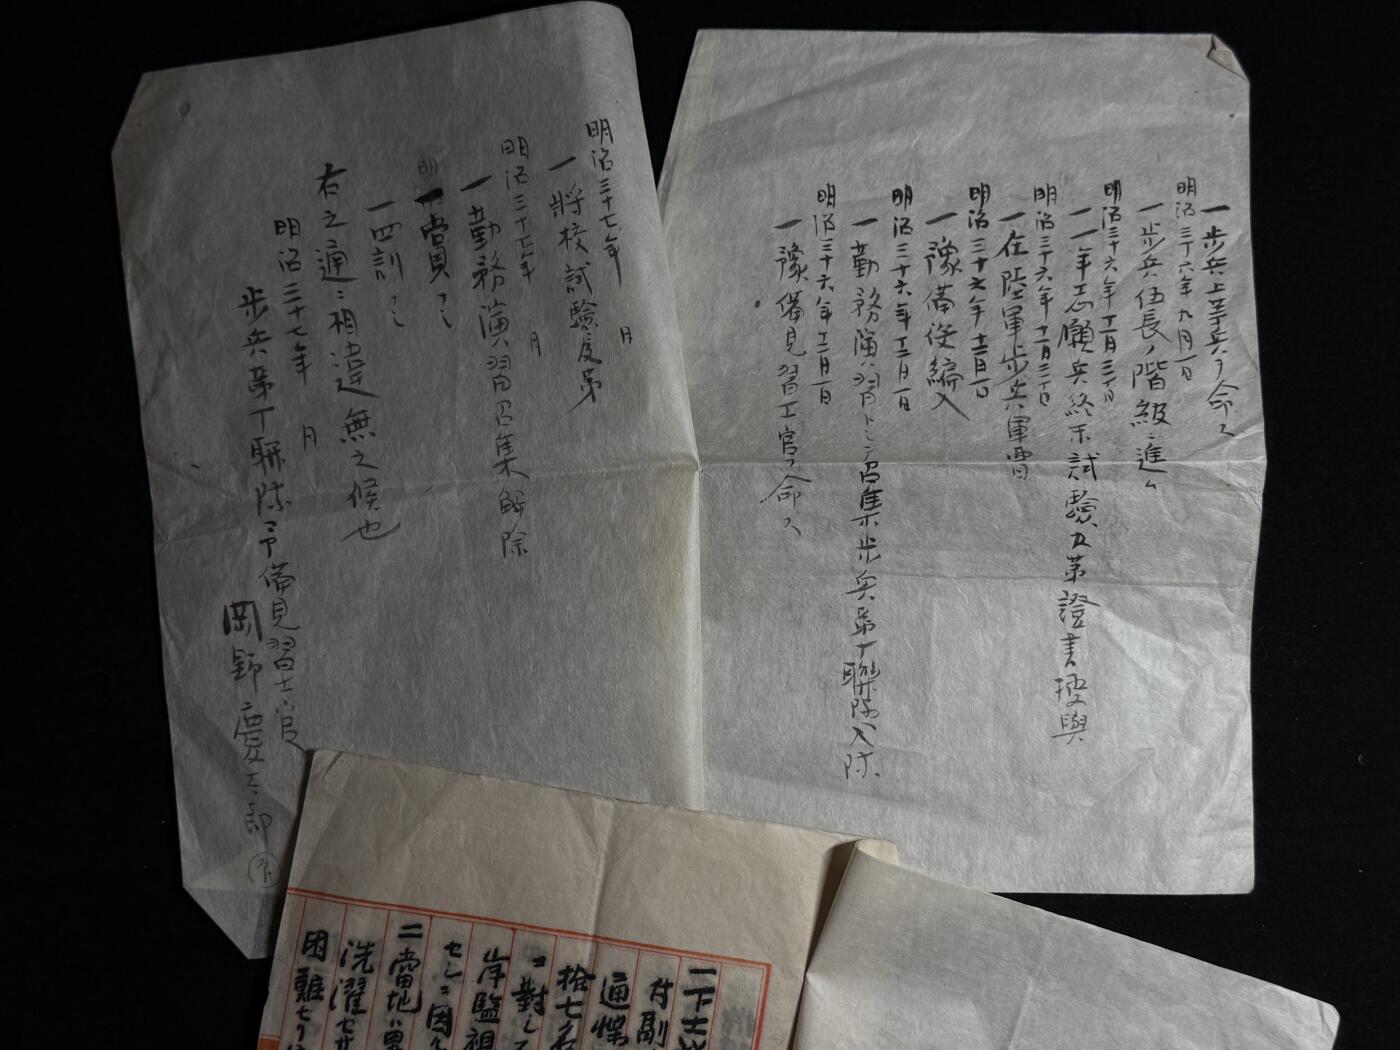 一 歩兵上等兵ヲ命ス
明治三十六年九月一日
一 歩兵伍長ノ階級ニ進ム
明治三十六年十一月三十日
一 一年志願兵終末試験及第證書授與
明治三十六年十一月三十日
一 任陸軍歩兵軍曹
明治三十六年十二月一日
一 豫備役編入
明治三十六年十二月一日
一 勤務演習トシテ召集歩兵第十聯隊入隊
明治三十六年十二月一日
一 豫備見習士官ヲ命ス
明治三十七年 月
一 將校試験及第
明治三十七年 月
一 勤務演習召集解除
一 賞
一 罰
右之通ニ相違無之候也
明治三十七年 月
歩兵第十聯隊 予備見習士官
岡 慶太郎
一下士
付副
通牒
拾七名
ニ對シ
岸監視
セシニ因
二當地ハ
洗濯セ
困難